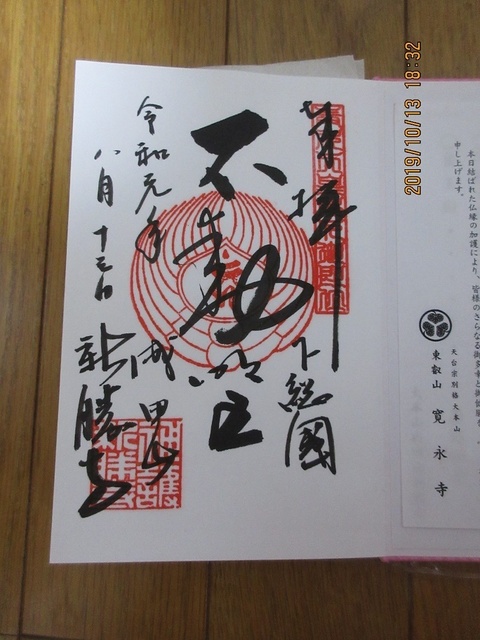 2019/10/13 18:32
本日結ばれた仏縁の加護により、皆様のさらなる御多幸と御健勝
申し上げます。
天台宗別格大本山
東叡山 寛永寺
奉拝 下総國
不動明王
令和元年 成田山
八月十三日 新勝寺